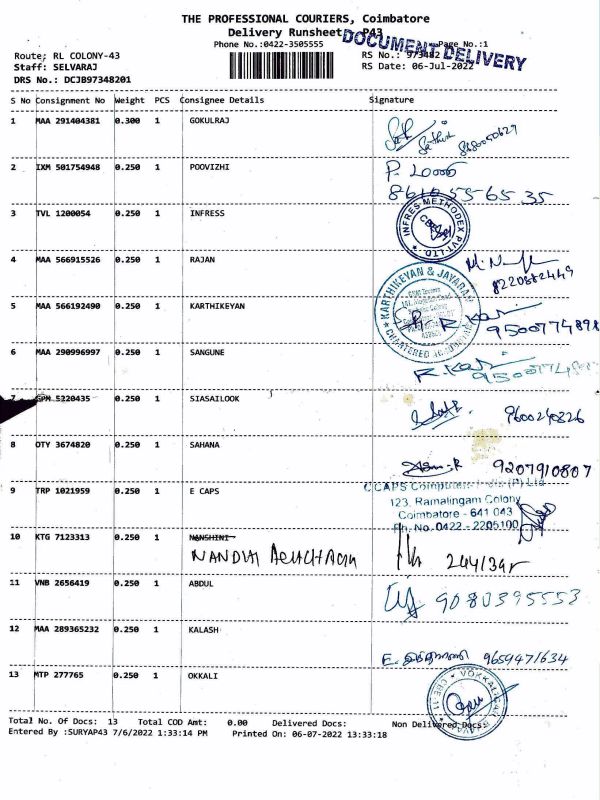 THE PROFESSIONAL COURIERS, Coimbatore
Delivery Runsheet - P43
Phone No.:0422-3505555
Page No.:1
DOCUMENT DELIVERY
Route: RL COLONY-43
RS No.: 973482
Staff: SELVARAJ
RS Date: 06-Jul-2022
DRS No.: DCJB97348201
S No Consignment No Weight PCS Consignee Details Signature
1 MAA 291404381 0.300 1 GOKULRAJ
8680050629
2 IXM 501754948 0.250 1 POOVIZHI
3 TVL 1200054 0.250 1 INFRESS
INFRES METHODEX PVT. LTD.
4 MAA 566915526 0.250 1 RAJAN
8220882449
KARTHIKEYAN & JAYARAM
CHARTERED ACCOUNTANTS
5 MAA 566192490 0.250 1 KARTHIKEYAN
9500774898
6 MAA 290996997 0.250 1 SANGUNE
7 GPM 5220435 0.250 1 SIASAILOOK
9600240826
8 OTY 3674820 0.250 1 SAHANA
9207910807
9 TRP 1021959 0.250 1 E CAPS
123, Ramalingam Colony
Coimbatore - 641 043
Ph. No. 0422 - 2205100
10 KTG 7123313 0.250 1 NANSHINI
11 VNB 2656419 0.250 1 ABDUL
9080395553
12 MAA 289365232 0.250 1 KALASH
9659471634
13 MTP 277765 0.250 1 OKKALI
Total No. Of Docs: 13 Total COD Amt: 0.00 Delivered Docs: Non Delivered Docs:
Entered By :SURYAP43 7/6/2022 1:33:14 PM Printed On: 06-07-2022 13:33:18